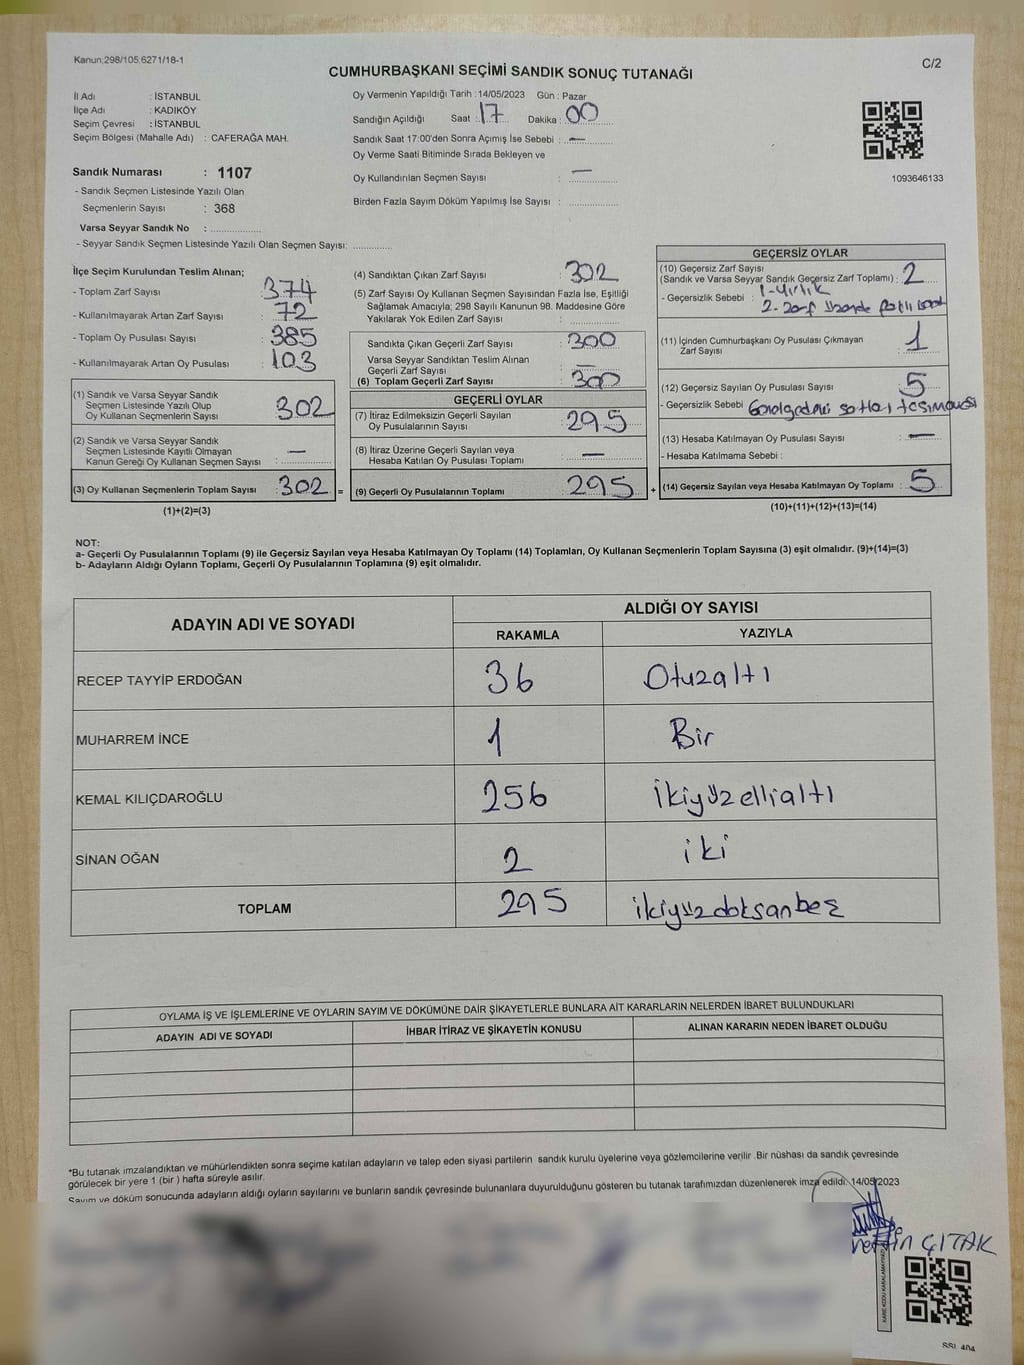 Kanun:298/105;6271/18-1
C/2
CUMHURBAŞKANI SEÇİMİ SANDIK SONUÇ TUTANAĞI
İl Adı : İSTANBUL
İlçe Adı : KADIKÖY
Seçim Çevresi : İSTANBUL
Seçim Bölgesi (Mahalle Adı) : CAFERAĞA MAH.
Sandık Numarası : 1107
- Sandık Seçmen Listesinde Yazılı Olan
Seçmenlerin Sayısı : 368
Varsa Seyyar Sandık No :
- Seyyar Sandık Seçmen Listesinde Yazılı Olan Seçmen Sayısı:
Oy Vermenin Yapıldığı Tarih : 14/05/2023 Gün : Pazar
Sandığın Açıldığı Saat : 17 Dakika : 00
Sandık Saat 17:00'den Sonra Açımış İse Sebebi : —
Oy Verme Saati Bitiminde Sırada Bekleyen ve
Oy Kullandırılan Seçmen Sayısı : —
Birden Fazla Sayım Döküm Yapılmış İse Sayısı :
1093646133
İlçe Seçim Kurulundan Teslim Alınan;
- Toplam Zarf Sayısı : 374
- Kullanılmayarak Artan Zarf Sayısı : 72
- Toplam Oy Pusulası Sayısı : 385
- Kullanılmayarak Artan Oy Pusulası : 103
(1) Sandık ve Varsa Seyyar Sandık
Seçmen Listesinde Yazılı Olup
Oy Kullanan Seçmenlerin Sayısı : 302
(2) Sandık ve Varsa Seyyar Sandık
Seçmen Listesinde Kayıtlı Olmayan
Kanun Gereği Oy Kullanan Seçmen Sayısı : —
(3) Oy Kullanan Seçmenlerin Toplam Sayısı : 302 =
(1)+(2)=(3)
(4) Sandıktan Çıkan Zarf Sayısı : 302
(5) Zarf Sayısı Oy Kullanan Seçmen Sayısından Fazla İse, Eşitliği
Sağlamak Amacıyla; 298 Sayılı Kanunun 98. Maddesine Göre
Yakılarak Yok Edilen Zarf Sayısı :
Sandıkta Çıkan Geçerli Zarf Sayısı : 300
Varsa Seyyar Sandıktan Teslim Alınan
Geçerli Zarf Sayısı : —
(6) Toplam Geçerli Zarf Sayısı : 300
GEÇERLİ OYLAR
(7) İtiraz Edilmeksizin Geçerli Sayılan
Oy Pusulalarının Sayısı : 295
(8) İtiraz Üzerine Geçerli Sayılan veya
Hesaba Katılan Oy Pusulası Toplamı : —
(9) Geçerli Oy Pusulalarının Toplamı : 295 +
GEÇERSİZ OYLAR
(10) Geçersiz Zarf Sayısı
(Sandık ve Varsa Seyyar Sandık Geçersiz Zarf Toplamı) : 2
- Geçersizlik Sebebi : 1-Yırtık
2- zarf üzerinde
(11) İçinden Cumhurbaşkanı Oy Pusulası Çıkmayan
Zarf Sayısı : 1
(12) Geçersiz Sayılan Oy Pusulası Sayısı : 5
- Geçersizlik Sebebi taşımaması
(13) Hesaba Katılmayan Oy Pusulası Sayısı : —
- Hesaba Katılmama Sebebi :
(14) Geçersiz Sayılan veya Hesaba Katılmayan Oy Toplamı : 5
(10)+(11)+(12)+(13)=(14)
NOT:
a- Geçerli Oy Pusulalarının Toplamı (9) ile Geçersiz Sayılan veya Hesaba Katılmayan Oy Toplamı (14) Toplamları, Oy Kullanan Seçmenlerin Toplam Sayısına (3) eşit olmalıdır. (9)+(14)=(3)
b- Adayların Aldığı Oyların Toplamı, Geçerli Oy Pusulalarının Toplamına (9) eşit olmalıdır.
ADAYIN ADI VE SOYADI
ALDIĞI OY SAYISI
RAKAMLA YAZIYLA
RECEP TAYYİP ERDOĞAN 36 Otuzaltı
MUHARREM İNCE 1 Bir
KEMAL KILIÇDAROĞLU 256 İkiyüzellialtı
SİNAN OĞAN 2 iki
TOPLAM 295 ikiyüzdoksanbeş
OYLAMA İŞ VE İŞLEMLERİNE VE OYLARIN SAYIM VE DÖKÜMÜNE DAİR ŞİKAYETLERLE BUNLARA AİT KARARLARIN NELERDEN İBARET BULUNDUKLARI
ADAYIN ADI VE SOYADI İHBAR İTİRAZ VE ŞİKAYETİN KONUSU ALINAN KARARIN NEDEN İBARET OLDUĞU
*Bu tutanak imzalandıktan ve mühürlendikten sonra seçime katılan adayların ve talep eden siyasi partilerin sandık kurulu üyelerine veya gözlemcilerine verilir .Bir nüshası da sandık çevresinde
görülecek bir yere 1 (bir ) hafta süreyle asılır.
Sayım ve döküm sonucunda adayların aldığı oyların sayılarını ve bunların sandık çevresinde bulunanlara duyurulduğunu gösteren bu tutanak tarafımızdan düzenlenerek imza edildi. 14/05/2023
ÇITAK